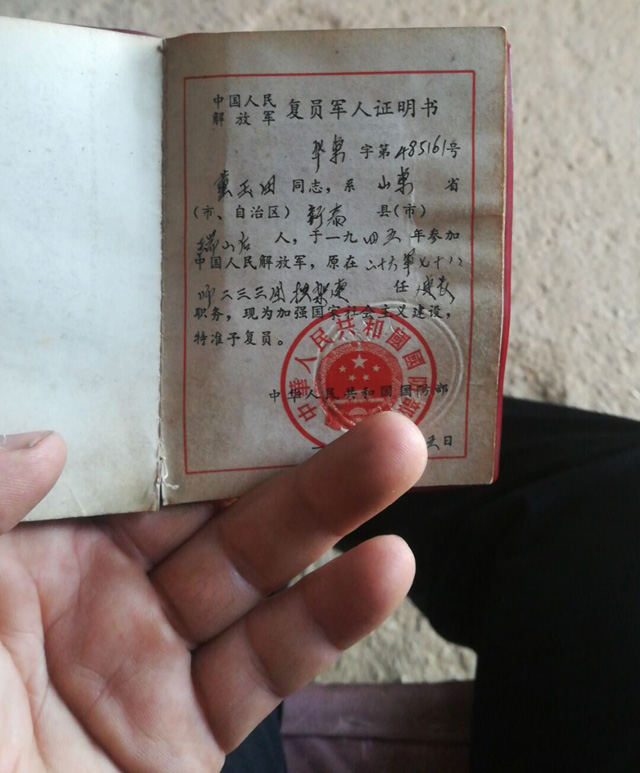 中国人民
解放军 复员军人证明书
华东 字第485161号
玉田 同志，系 山东 省
（市、自治区） 新泰 县（市）
人，于一九四五年参加
中国人民解放军，原在二十六军七十八
师二三三团担架连 任
职务，现为加强国家社会主义建设，
特准予复员。
中华人民共和国国防部
日
中華人民共和國國防部